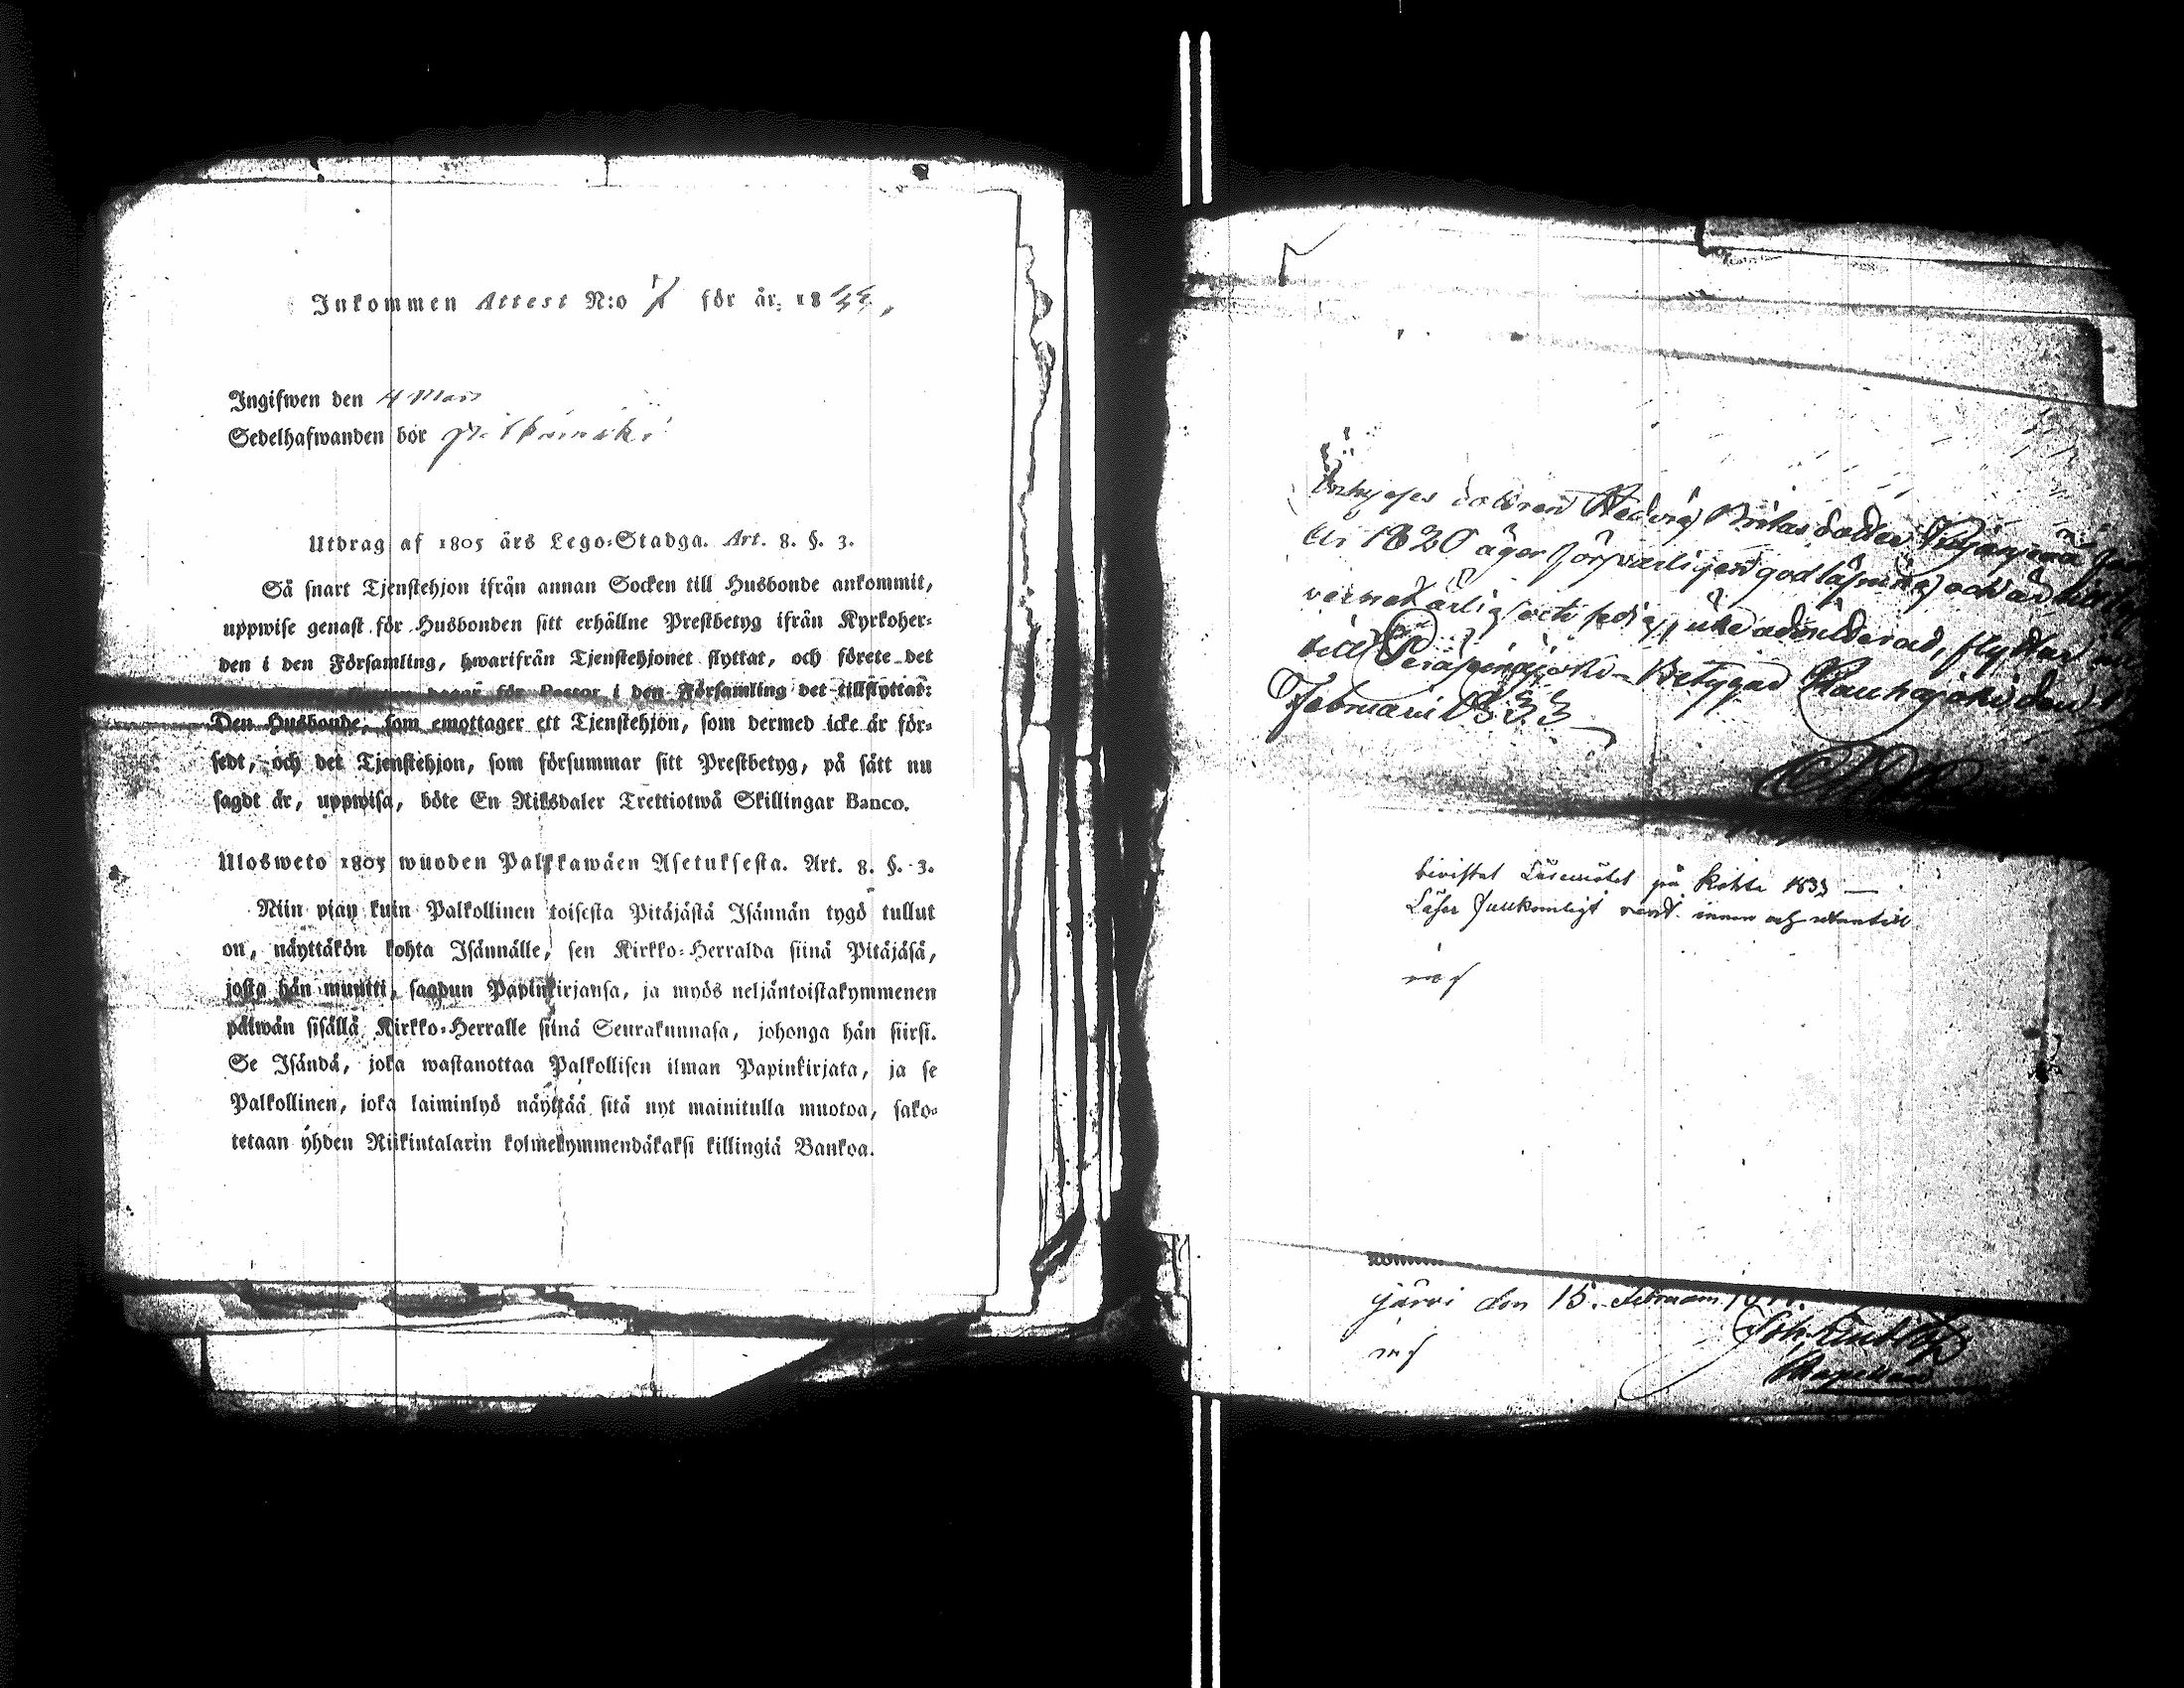 Inkommen Attest N:o 7 för år 1833,
Ingifwen den 4 Mars
Sedelhafwanden bor
Utdrag af 1805 års Lego-Stadga. Art. 8. §. 3.
Så snart Tjenstehjon ifrån annan Socken till Husbonde ankommit,
uppwise genast för Husbonden sitt erhållne Prestbetyg ifrån Kyrkoher-
den i den Församling, hwarifrån Tjenstehjonet flyttat, och förete det
dagar för Pastor i den Församling det tillflyttat:
Den Husbonde, som emottager ett Tjenstehjon, som dermed icke är för-
sedt, och det Tjenstehjon, som försummar sitt Prestbetyg, på sätt nu
sagdt är, uppwisa, böte En Riksdaler Trettiotwå Skillingar Banco.
Ulosweto 1805 wuoden Palkkawäen Asetuksesta. Art. 8. §. 3.
Niin pian kuin Palkollinen toisesta Pitäjästä Isännän tygö tullut
on, näyttäkön kohta Isännälle, sen Kirkko-Herralda siinä Pitäjäsä,
josta hän muutti, saadun Papinkirjansa, ja myös neljäntoistakymmenen
päiwän sisällä Kirkko-Herralle siinä Seurakunnasa, johonga hän siirsi.
Se Isändä, joka wastanottaa Palkollisen ilman Papinkirjata, ja se
Palkollinen, joka laiminlyö näyttää sitä nyt mainitulla muotoa, sako-
tetaan yhden Riikintalarin kolmekymmendäkaksi killingiä Bankoa.
Inhyses dottren Hedvig
år 1820 äger försvarligen god läsning och är
ärlig och admitterad, flyttar
till Peräseinäjoki Betygad Kauhajoki den
Februari 1833
bivistat Läsemötet på 1833
Läser innan och utantill
järvi den 15. Februari
Joh.
Kapellan